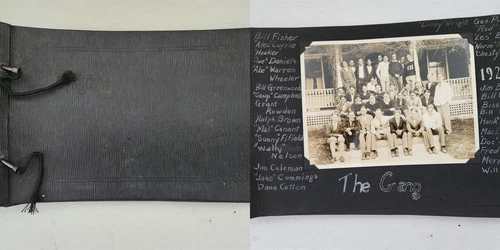 Bill Fisher
"Alec" Currie
Hooker
"Joe" Daniels
"Abe" Warren
Wheeler
Bill Greenwood
"Soup" Campbell
Grant
Rowden
Ralph Brown
"Mal" Conant
"Sunny" Fifield
"Wally"
Nelson
Jim Coleman
"Jake" Cummings
Dana Cotton
The Gang
Geo.
"Rod
"Les"
Norm
"Chesty
192
Jim
Bill
Bis
Bill
"Hank"
Ma
Doc
Fred
Will